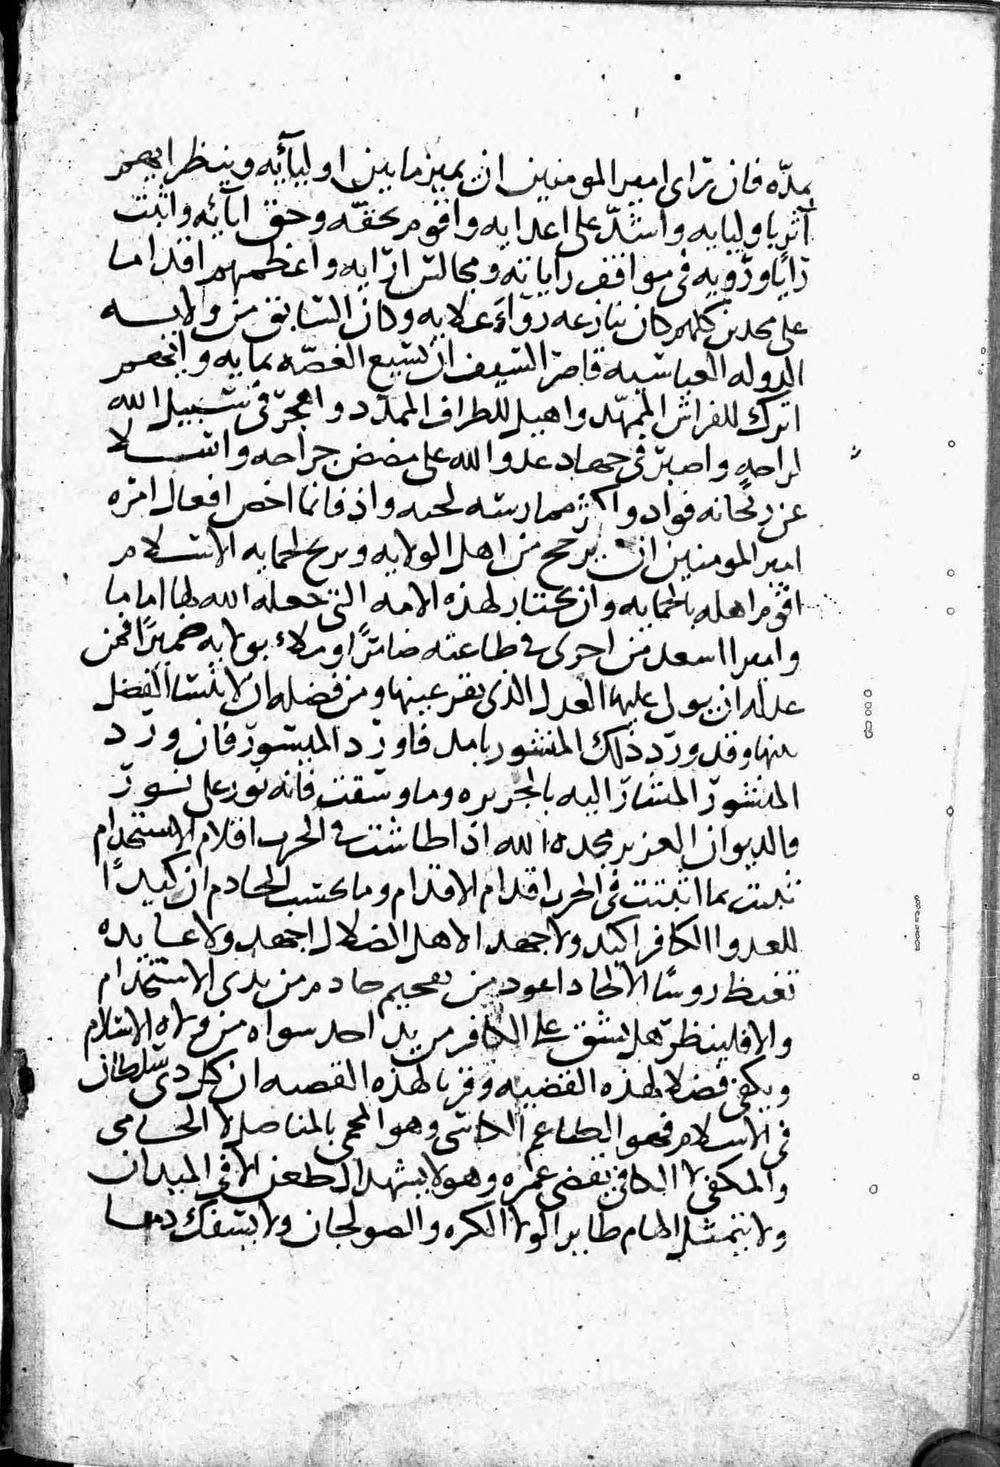 بمدّه فان راى امير المومنين ان يميز ما بين اوليآئه وينظر ايهم
آثر باوليايه واشدّ على اعدايه واقوم بحقّه وحق ابآئه واثبت
رايا ورويه فى مواقف راياته ومجالس ارآيه واعظمهم اقداما
على محدين كلهم كان ينازعه روآء علايه وكان السابق من ولايه
الدوله العباسيه قاصر السيف ان يسيغ الغصّه بمايه وايهم
اترك للفراش الممهّد واهيل للطراف الممدد واهجر فى سبيل الله
لراحه واصبر فى جهاد عدو الله على مضض جراحه واسلا
عن ريحانه فواد واكثر ممارسه لحيه واد فانما اخص افعال امره
امير المومنين ان يرجح من اهل الولايه ويريح لحمايه الاسلام
اقوم اهله بالحمايه وان يختار لهذه الامه التى جعله الله لها اماما
واميرا اسعد من اجرى فى طاعته ضامرًا وملاء بولايه ضميرًا فمن
عدله ان يولى عليها العدل الذى يقر عينها ومن فضله ان لا ينسا الفضل
بينها وقد ورد ذلك المنشور بامد فاورد الميسور فان ورد
المنشور المشار اليه بالجزيره وما وسقت فانه نور على نور
والديوان العزيز مجده الله اذا طاشت فى الحرب اقلام الاستخدام
ثبتت بما اثبتت فى الحرب اقدام الاقدام وما يكتب الخادم ان كيدًا
للعدو الكافر اكيد ولا جهد الاهل الضلال اجهد ولا عايده
تغيظ روسا الالحاد اعود من تفخيم خادم من يدى الاستخدام
والا فلينظر هل يشق على الكافر من يد احد سواه من ولاه الاسلام
ويكفى فضلا لهذه القضيه وفرقا لهذه القصه ان كل ذى سلطان
فى الاسلام فهو الطاعم الكاسى وهو المحمى بالمناصل لا الحامى
والمكفى لا الكافى يقضى عمره وهو لا يشهد الطعن الا فى الميدان
ولا يتمثل الهام طايرا لولا الكره والصولجان ولا يسفك دما